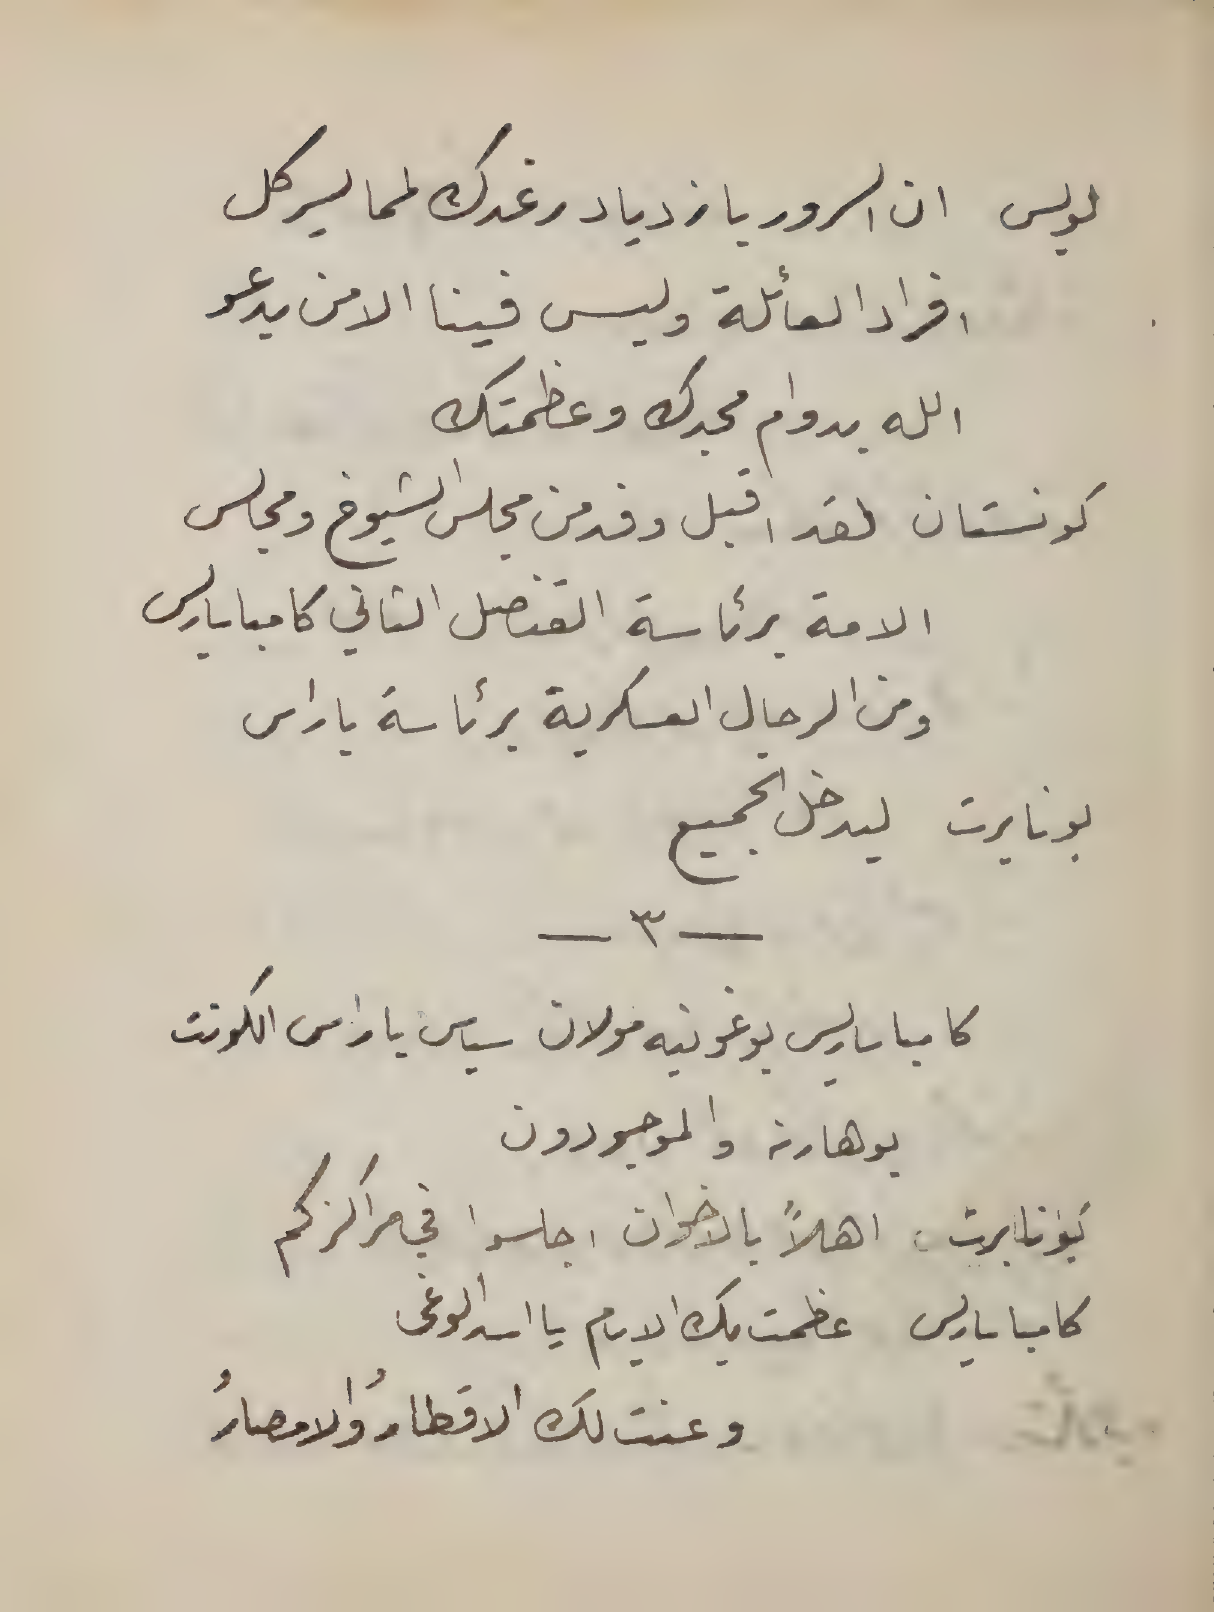 لويس ان السرور بازدياد رغدك لمما يسر كل
افراد العائلة وليس فينا الا من يدعو
الله بدوام مجدك وعظمتك
كونستان لقد اقبل وفد من مجلس الشيوخ ومجلس
الامة برئاسة القنصل الثاني كامباسارلس
ومن الرجال العسكرية برئاسة باراس
بونابرت ليدخل الجميع
— ٣ —
كامباسارلس بوغونيه مولان سياس باراس الكونت
بوهارنه والموجودون
بونابرت اهلاً بالاخوان اجلسوا في مراكزكم
كامباسارلس عظمت بك الايام يا اسد الوغى
وعنت لك الاقطارُ والامصارُ